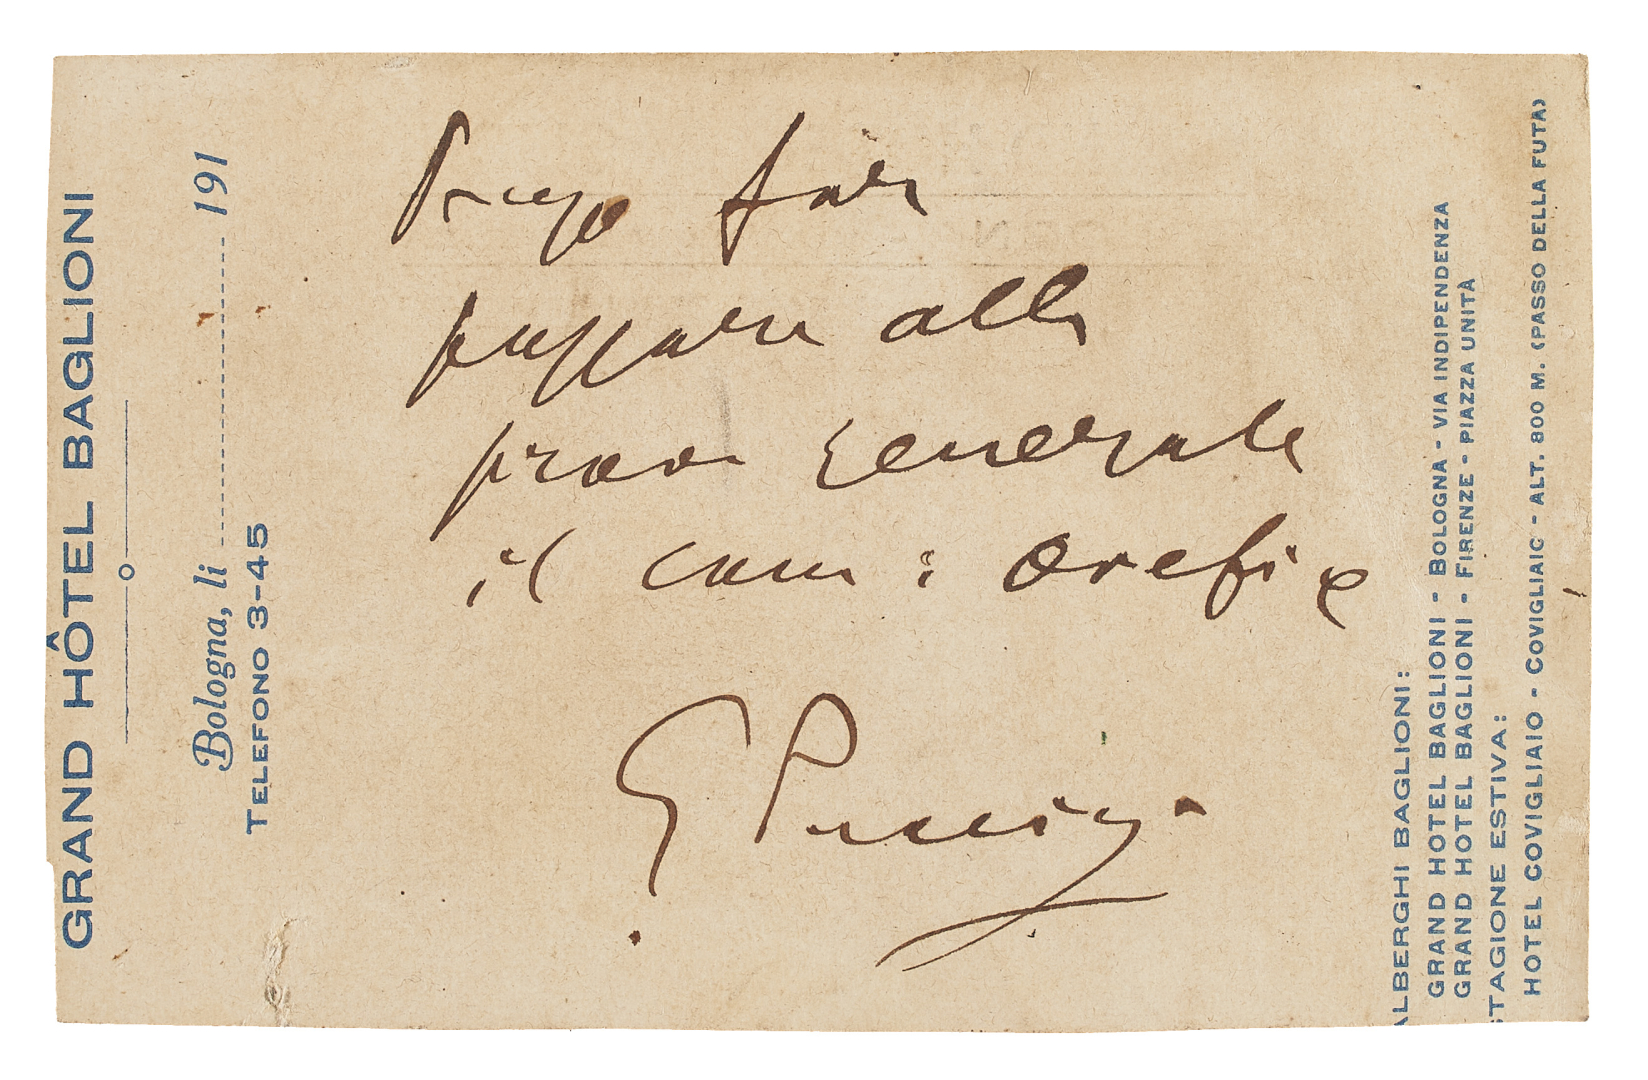 GRAND HÔTEL BAGLIONI
Bologna, li ........................ 191
TELEFONO 3-45
Prego far
passare alla
prova generale
il com : Orefice
G Puccini
ALBERGHI BAGLIONI:
GRAND HOTEL BAGLIONI - BOLOGNA - VIA INDIPENDENZA
GRAND HOTEL BAGLIONI - FIRENZE - PIAZZA UNITÀ
STAGIONE ESTIVA:
HOTEL COVIGLIAIO - COVIGLIAIO - ALT. 800 M. (PASSO DELLA FUTA)